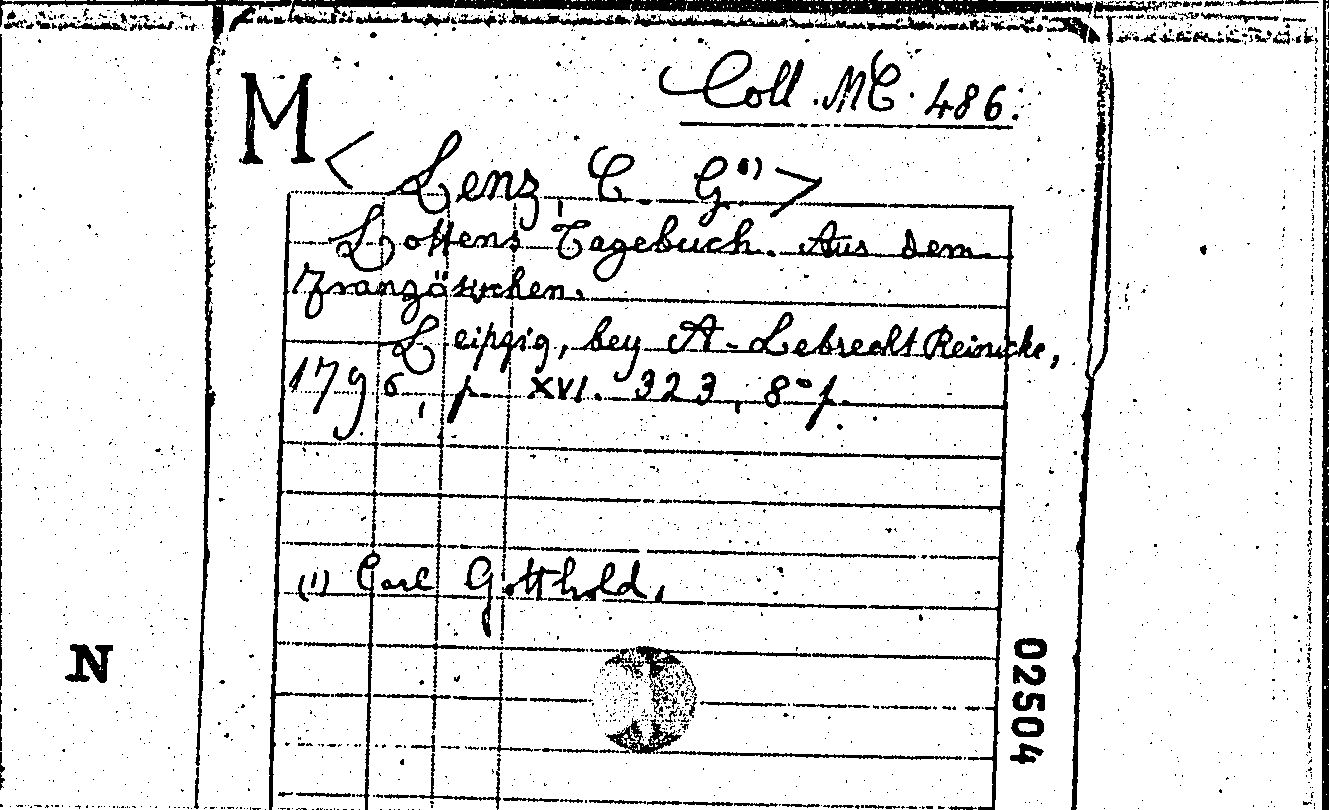 Coll. MC. 486.
M
< Lenz, C. G. 1) >
Lottens Tagebuch. Aus dem
Französischen.
Leipzig, bey A. Lebrecht Reinicke,
1796, p. XVI. 323, 8° p.
(1) Carl Gotthold.
N
02504